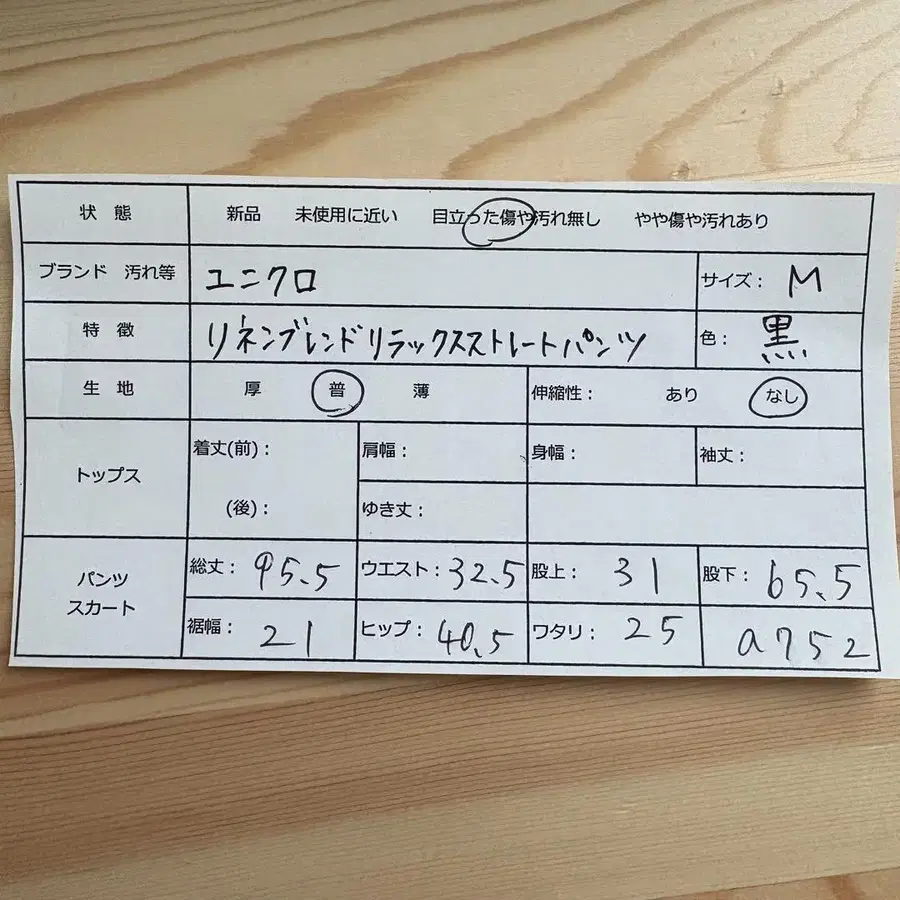 状態 新品 未使用に近い 目立った傷や汚れ無し やや傷や汚れあり
ブランド 汚れ等 ユニクロ サイズ： M
特徴 リネンブレンドリラックスストレートパンツ 色： 黒
生地 厚 普 薄 伸縮性： あり なし
トップス 着丈(前)： 肩幅： 身幅： 袖丈：
(後)： ゆき丈：
パンツ スカート 総丈： 95.5 ウエスト： 32.5 股上： 31 股下： 65.5
裾幅： 21 ヒップ： 40.5 ワタリ： 25 a752